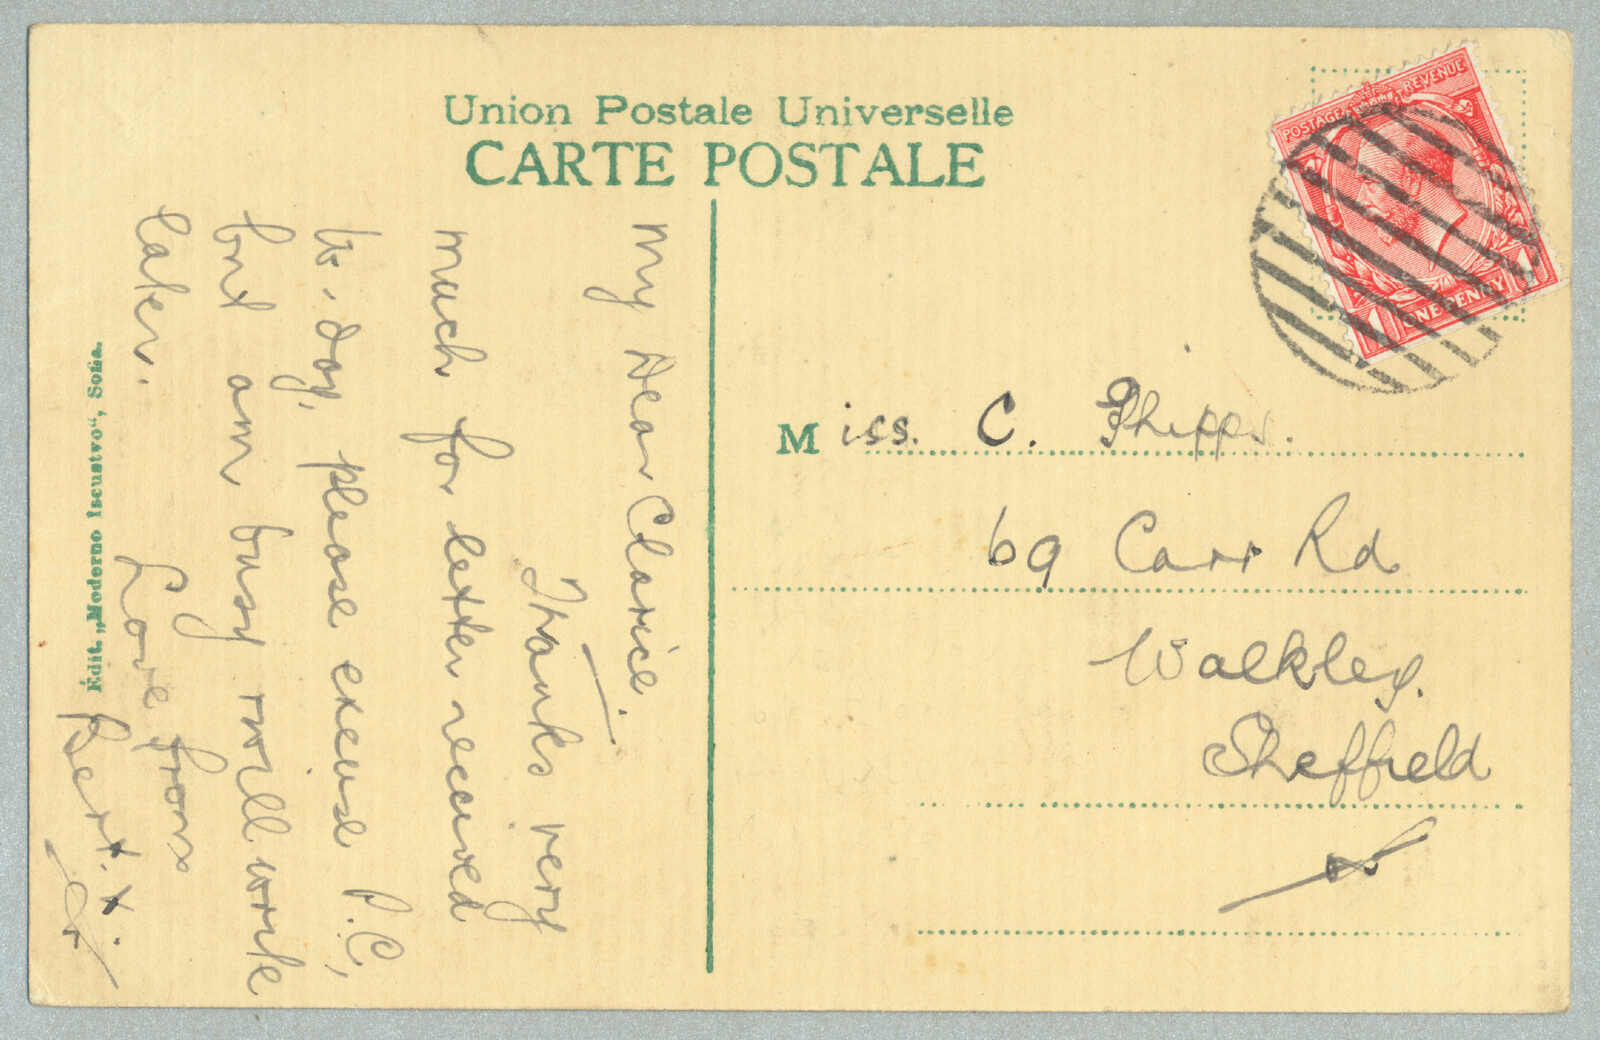 Union Postale Universelle
CARTE POSTALE
POSTAGE REVENUE
1 ONE PENNY 1
My Dear Clarice.
Thanks very
much for letter received
to-day, please excuse P.C,
but am busy will write
later.
Love from
Bert. x x.
Édit. „Moderno Iscustvo“, Sofia.
Miss. C. Phipps.
69 Carr Rd
Walkley.
Sheffield